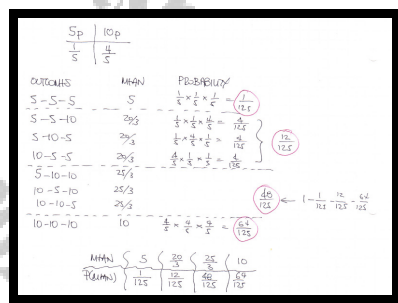 5p 10p
1/5 4/5
OUTCOMES MEAN PROBABILITY
5-5-5 5 1/5 × 1/5 × 1/5 = 1/125
5-5-10 20/3 1/5 × 1/5 × 4/5 = 4/125
5-10-5 20/3 1/5 × 4/5 × 1/5 = 4/125 12/125
10-5-5 20/3 4/5 × 1/5 × 1/5 = 4/125
5-10-10 25/3
10-5-10 25/3 48/125 ← 1 - 1/125 - 12/125 - 64/125
10-10-5 25/3
10-10-10 10 4/5 × 4/5 × 4/5 = 64/125
MEAN 5 20/3 25/3 10
P(MEAN) 1/125 12/125 48/125 64/125